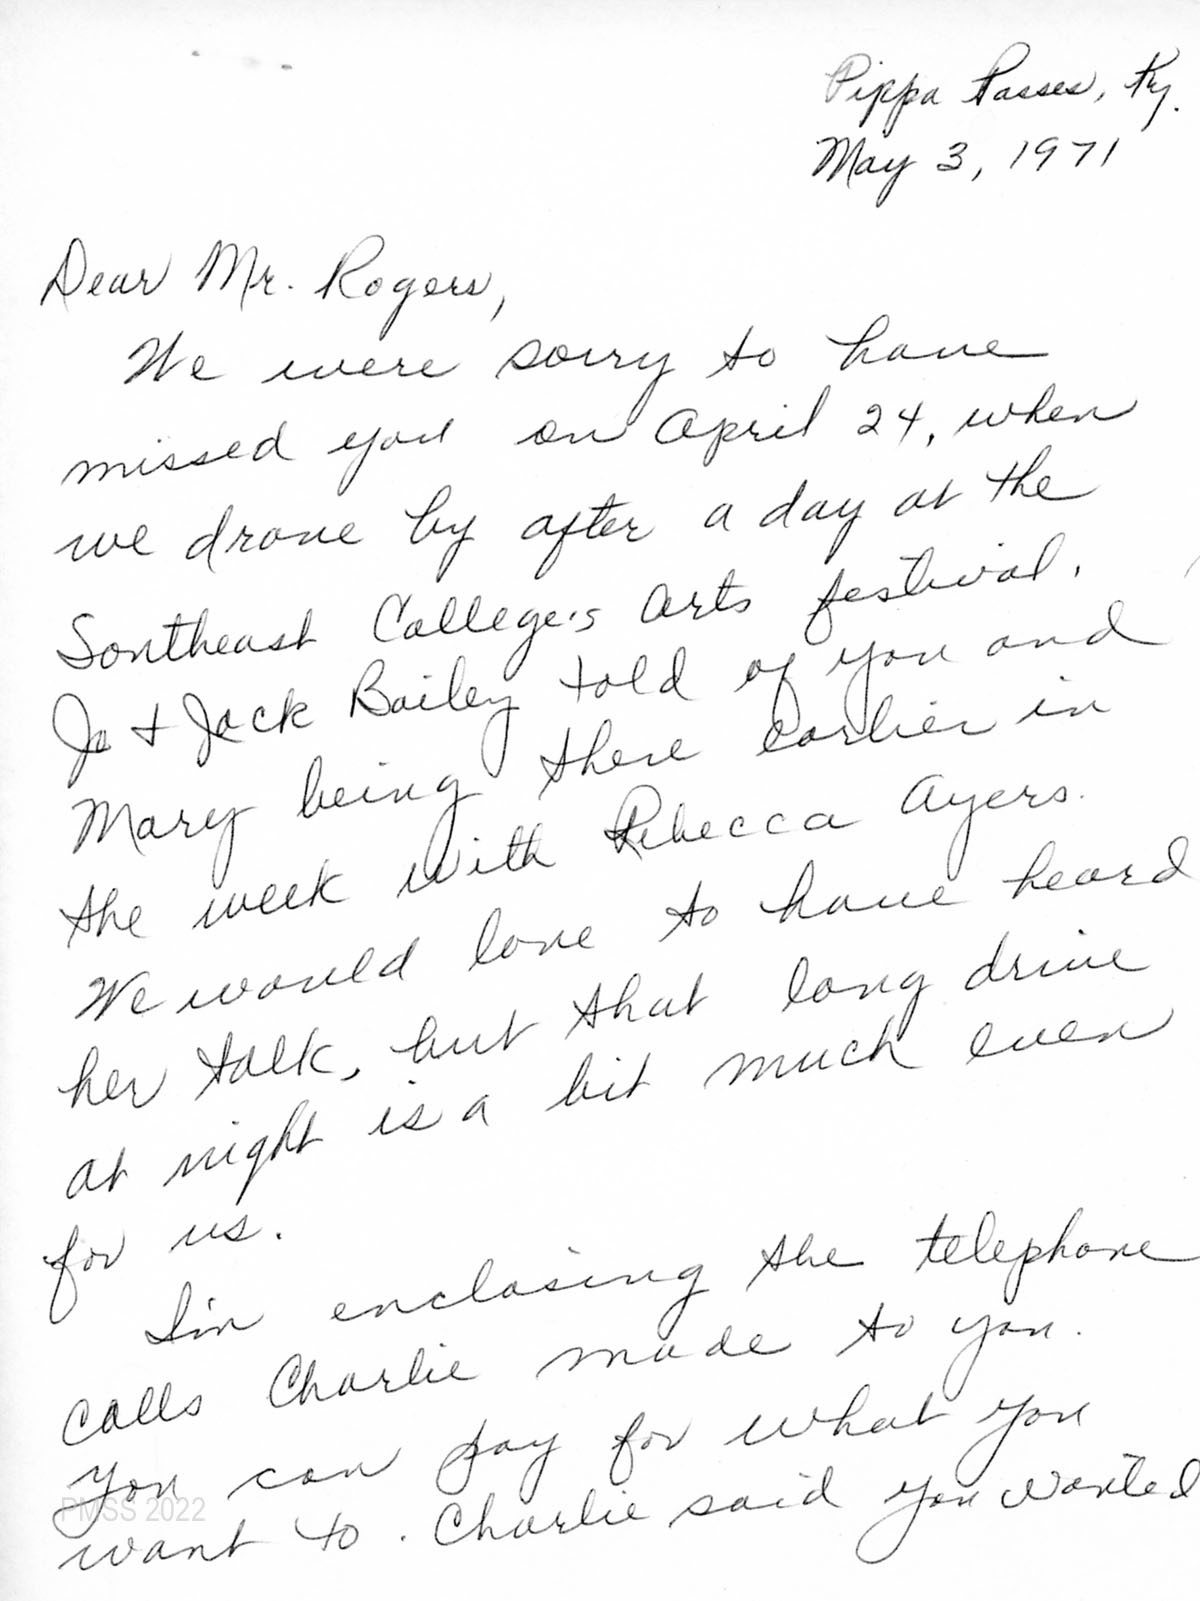 Pippa Passes, Ky.
May 3, 1971
Dear Mr. Rogers,
We were sorry to have
missed you on April 24, when
we drove by after a day at the
Southeast College's Arts festival.
Jo + Jack Bailey told of you and
Mary being there earlier in
the week with Rebecca Ayers.
We would love to have heard
her talk, but that long drive
at night is a bit much even
for us.
I'm enclosing the telephone
calls Charlie made to you.
You can pay for what you
PMSS 2022
want to. Charlie said you wanted